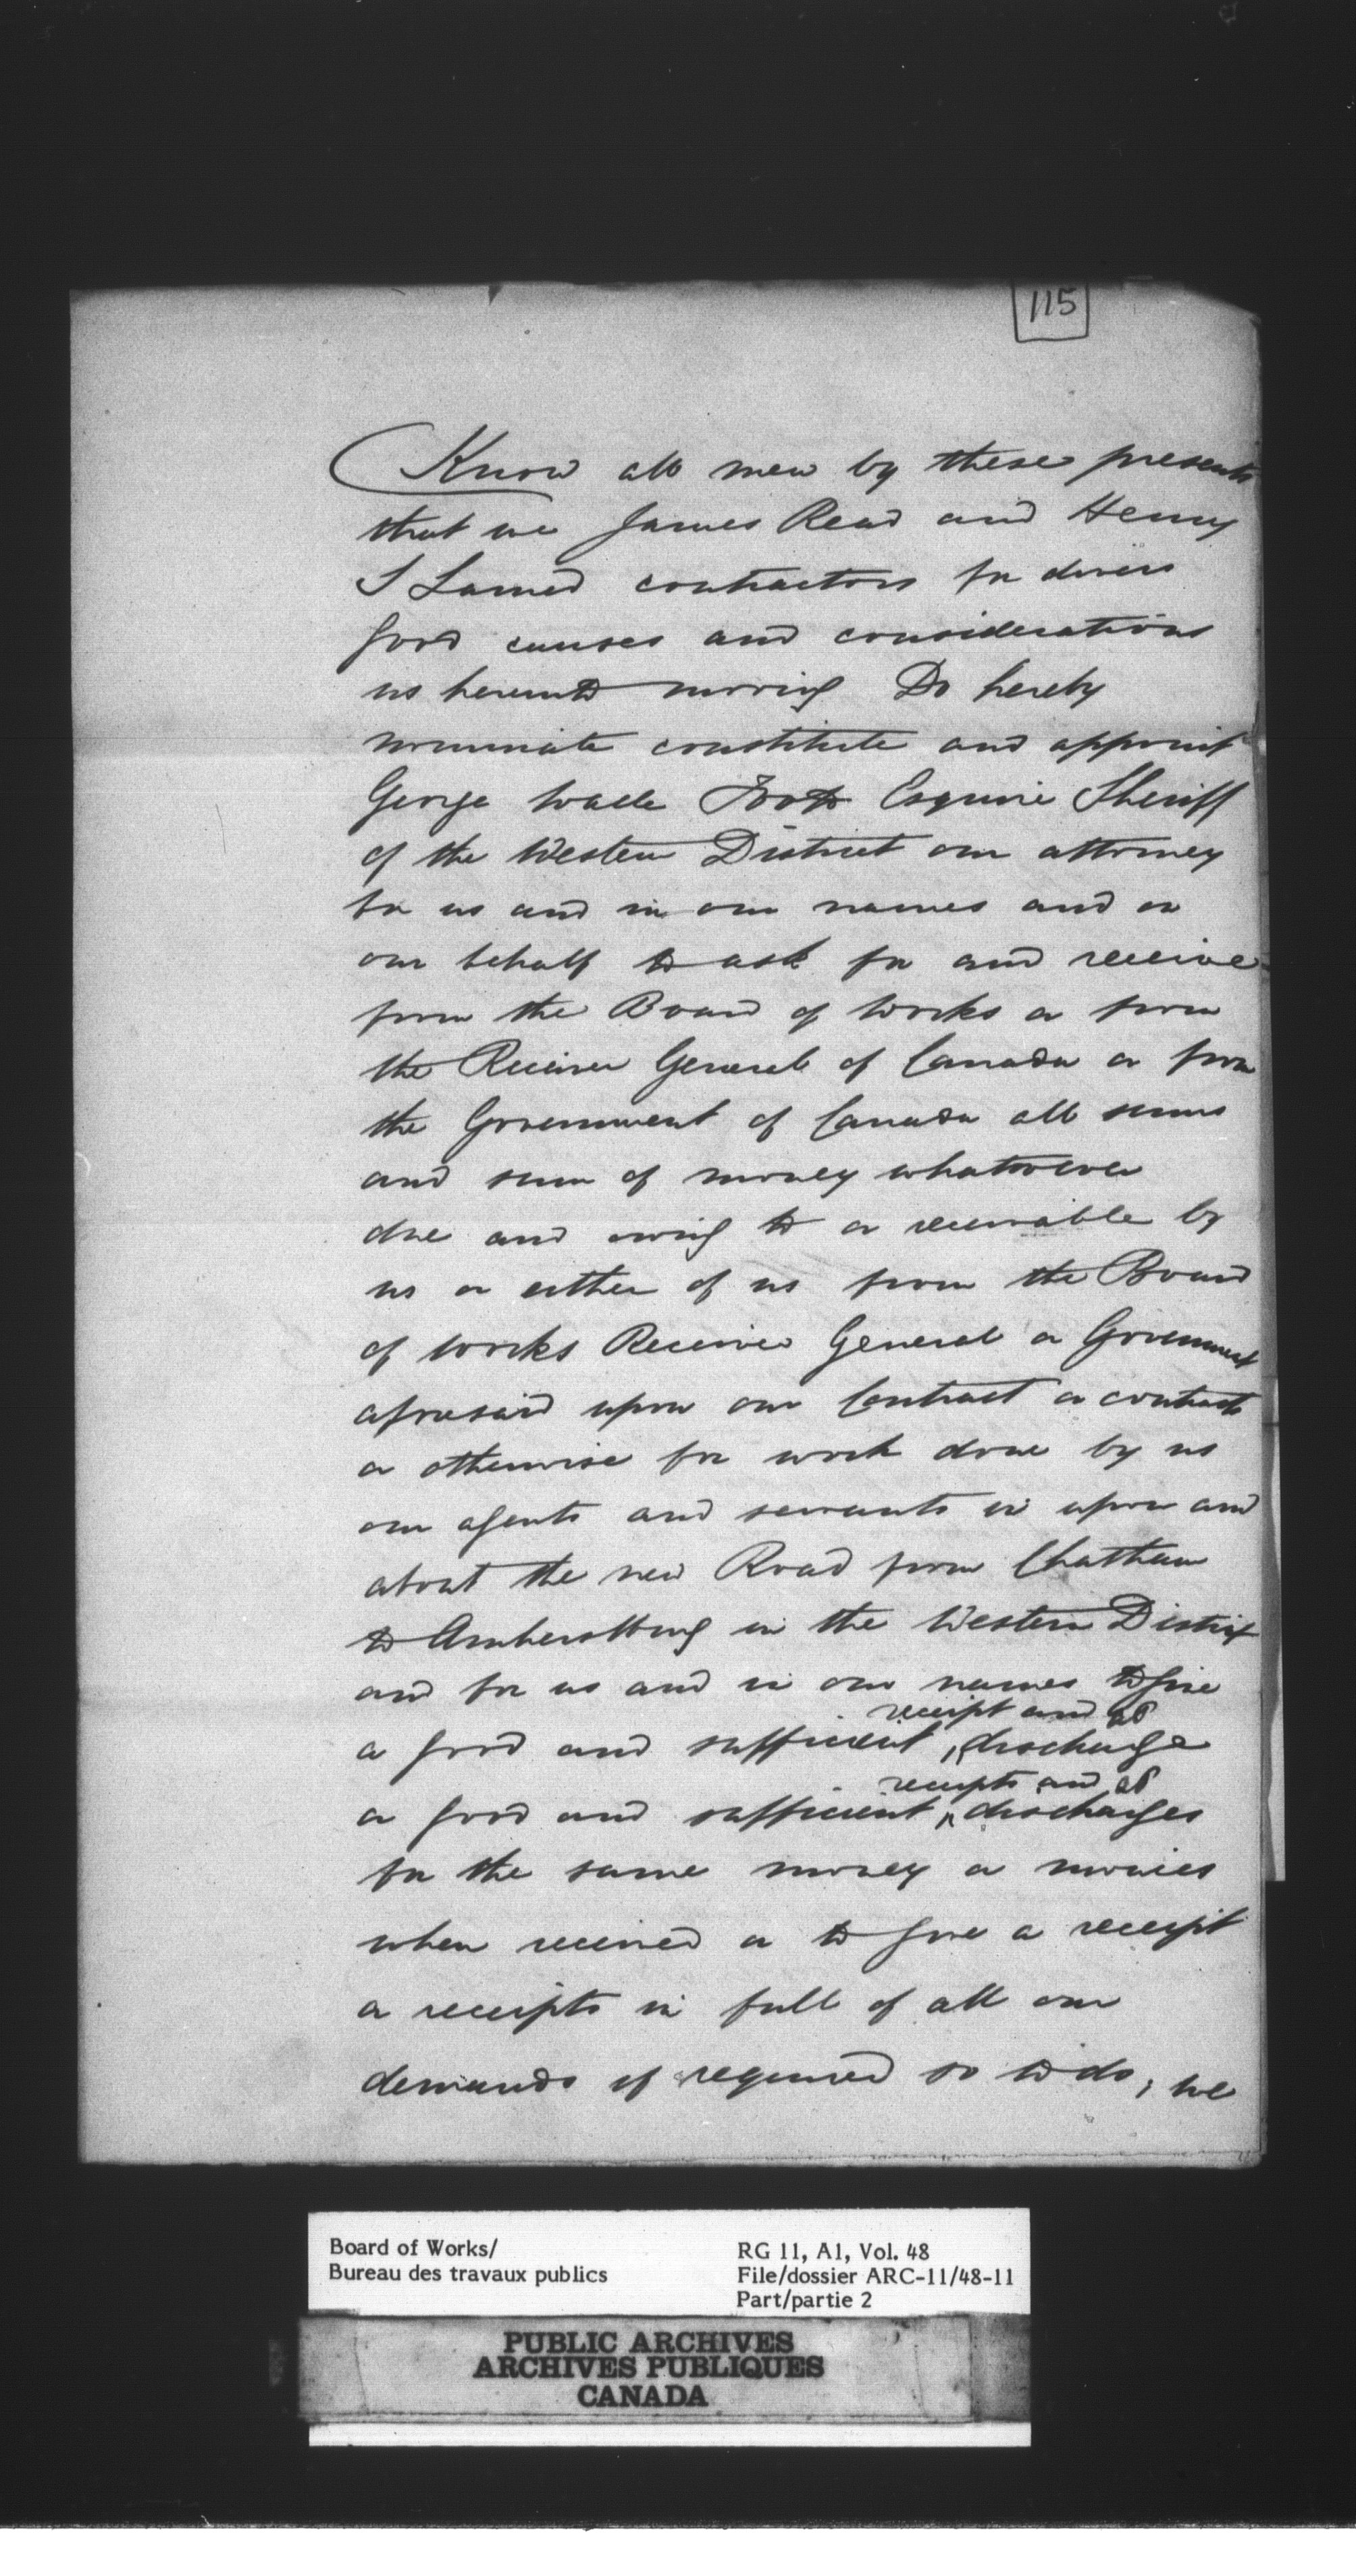 115
Know all men by these presents
that we James Read and Henry
S Larned contractors for divers
good causes and considerations
us hereunto moving Do hereby
nominate constitute and appoint
George Wade Foott Esquire Sheriff
of the Western District our attorney
for us and in our names and on
our behalf to ask for and receive
from the Board of Works or from
the Receiver General of Canada or from
the Government of Canada all sums
and sum of money whatsoever
due and owing to or receivable by
us or either of us from the Board
of works Receiver General or Government
aforesaid upon our Contract or contracts
or otherwise for work done by us
our agents and servants in upon and
about the new Road from Chatham
to Amherstburg in the Western District
and for us and in our names to give
receipt and
a good and sufficient discharge
receipts and
or good and sufficient discharges
for the same money or monies
when received or to give a receipt
or receipts in full of all our
demands if required so to do; We
Board of Works/
Bureau des travaux publics
RG 11, A1, Vol. 48
File/dossier ARC-11/48-11
Part/partie 2
PUBLIC ARCHIVES
ARCHIVES PUBLIQUES
CANADA